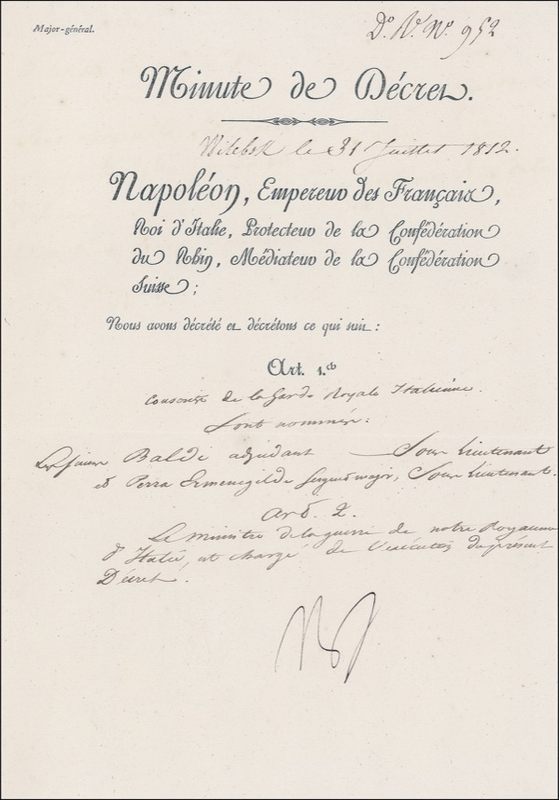 Major-général.
Do. Vt. No. 952
Minute de Décret.
Witebsk le 31 Juillet 1812.
Napoléon, Empereur des Français,
Roi d'Italie, Protecteur de la Confédération
du Rhin, Médiateur de la Confédération
Suisse;
Nous avons décrété et décrétons ce qui suit:
Art. 1.er
de la Garde Royale Italienne.
Sont nommés:
Baldi adjudant — Sous lieutenant
et Perra Ermenegilde Sergent major, Sous lieutenant.
Art. 2.
Le ministre de la guerre de notre Royaume
d'Italie, est chargé de l'exécution du présent
Décret.